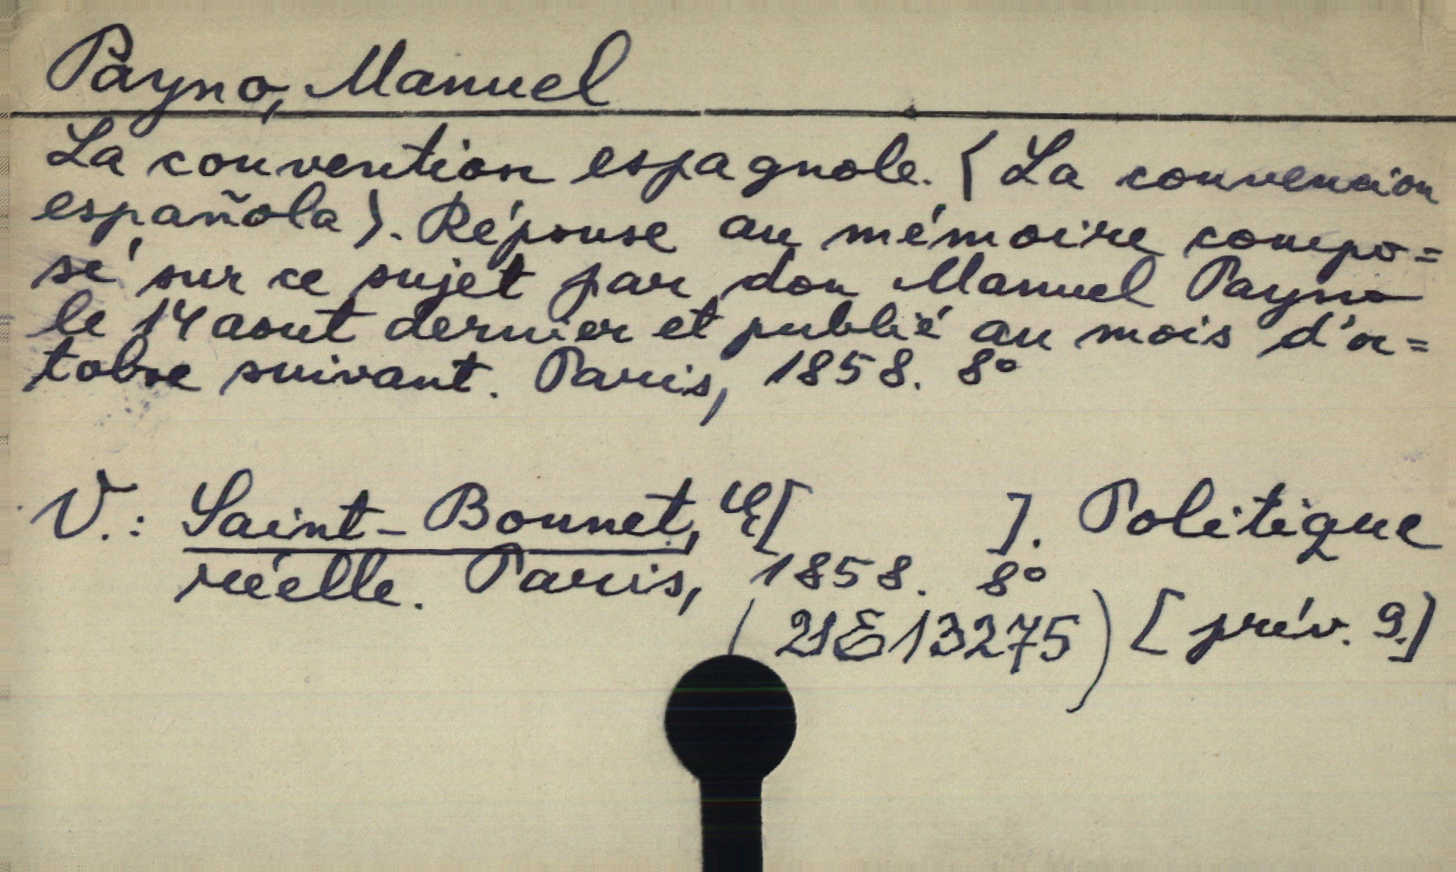 Payno, Manuel
La convention espagnole. (La convencion
española). Réponse au mémoire compo=
sé sur ce sujet par don Manuel Payno
le 14 aout dernier et publié au mois d'oc=
tobre suivant. Paris, 1858. 8°
V.: Saint-Bonnet, E[ ]. Politique
réelle. Paris, 1858. 8°
( 13275) [prév. 9.]